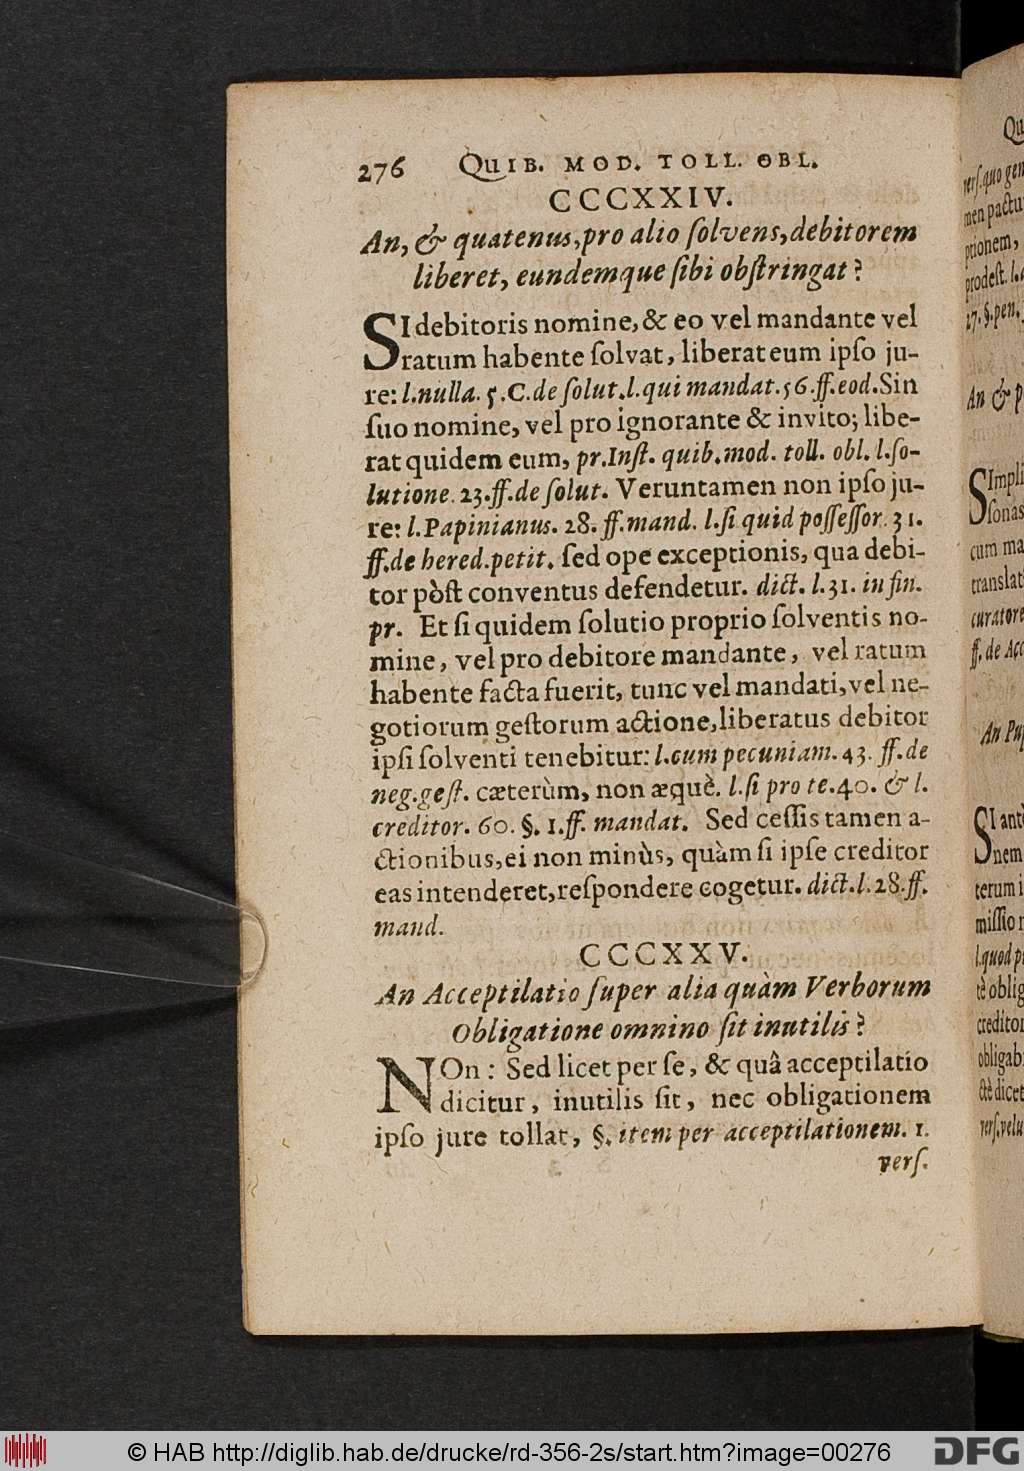 276 QUIB. MOD. TOLL. OBL.
CCCXXIV.
An, & quatenus, pro alio ſolvens, debitorem
liberet, eundemque ſibi obſtringat?
SI debitoris nomine, & eo vel mandante vel
ratum habente ſolvat, liberat eum ipſo ju-
re: l. nulla. 5. C. de ſolut. l. qui mandat. 56. ff. eod. Sin
ſuo nomine, vel pro ignorante & invito; libe-
rat quidem eum, pr. Inſt. quib. mod. toll. obl. l. ſo-
lutione. 23. ff. de ſolut. Veruntamen non ipſo ju-
re: l. Papinianus. 28. ff. mand. l. ſi quid poſſeſſor. 31.
ff. de hered. petit. ſed ope exceptionis, qua debi-
tor pòſt conventus defendetur. dict. l. 31. in fin.
pr. Et ſi quidem ſolutio proprio ſolventis no-
mine, vel pro debitore mandante, vel ratum
habente facta fuerit, tunc vel mandati, vel ne-
gotiorum geſtorum actione, liberatus debitor
ipſi ſolventi tenebitur: l. cum pecuniam. 43. ff. de
neg. geſt. cæterùm, non æquè. l. ſi pro te. 40. & l.
creditor. 60. §. 1. ff. mandat. Sed ceſſis tamen a-
ctionibus, ei non minùs, quàm ſi ipſe creditor
eas intenderet, reſpondere cogetur. dict. l. 28. ff.
mand.
CCCXXV.
An Acceptilatio ſuper alia quàm Verborum
Obligatione omnino ſit inutilis?
NOn: Sed licet per ſe, & quâ acceptilatio
dicitur, inutilis ſit, nec obligationem
ipſo jure tollat, §. item per acceptilationem. 1.
verſ.
Qu
verſ. quo gen
men pactu
ptionem,
prodeſt. l.
27. §. pen.
An & p
SImpli
ſonas
cum ma
translat
curatore
ff. de Acc
An Pup
SI antè
nem
terum i
miſſio
l. quod p
tè oblig
creditor
obligab
ctè dicet
verſ. velu
© HAB http://diglib.hab.de/drucke/rd-356-2s/start.htm?image=00276
DFG